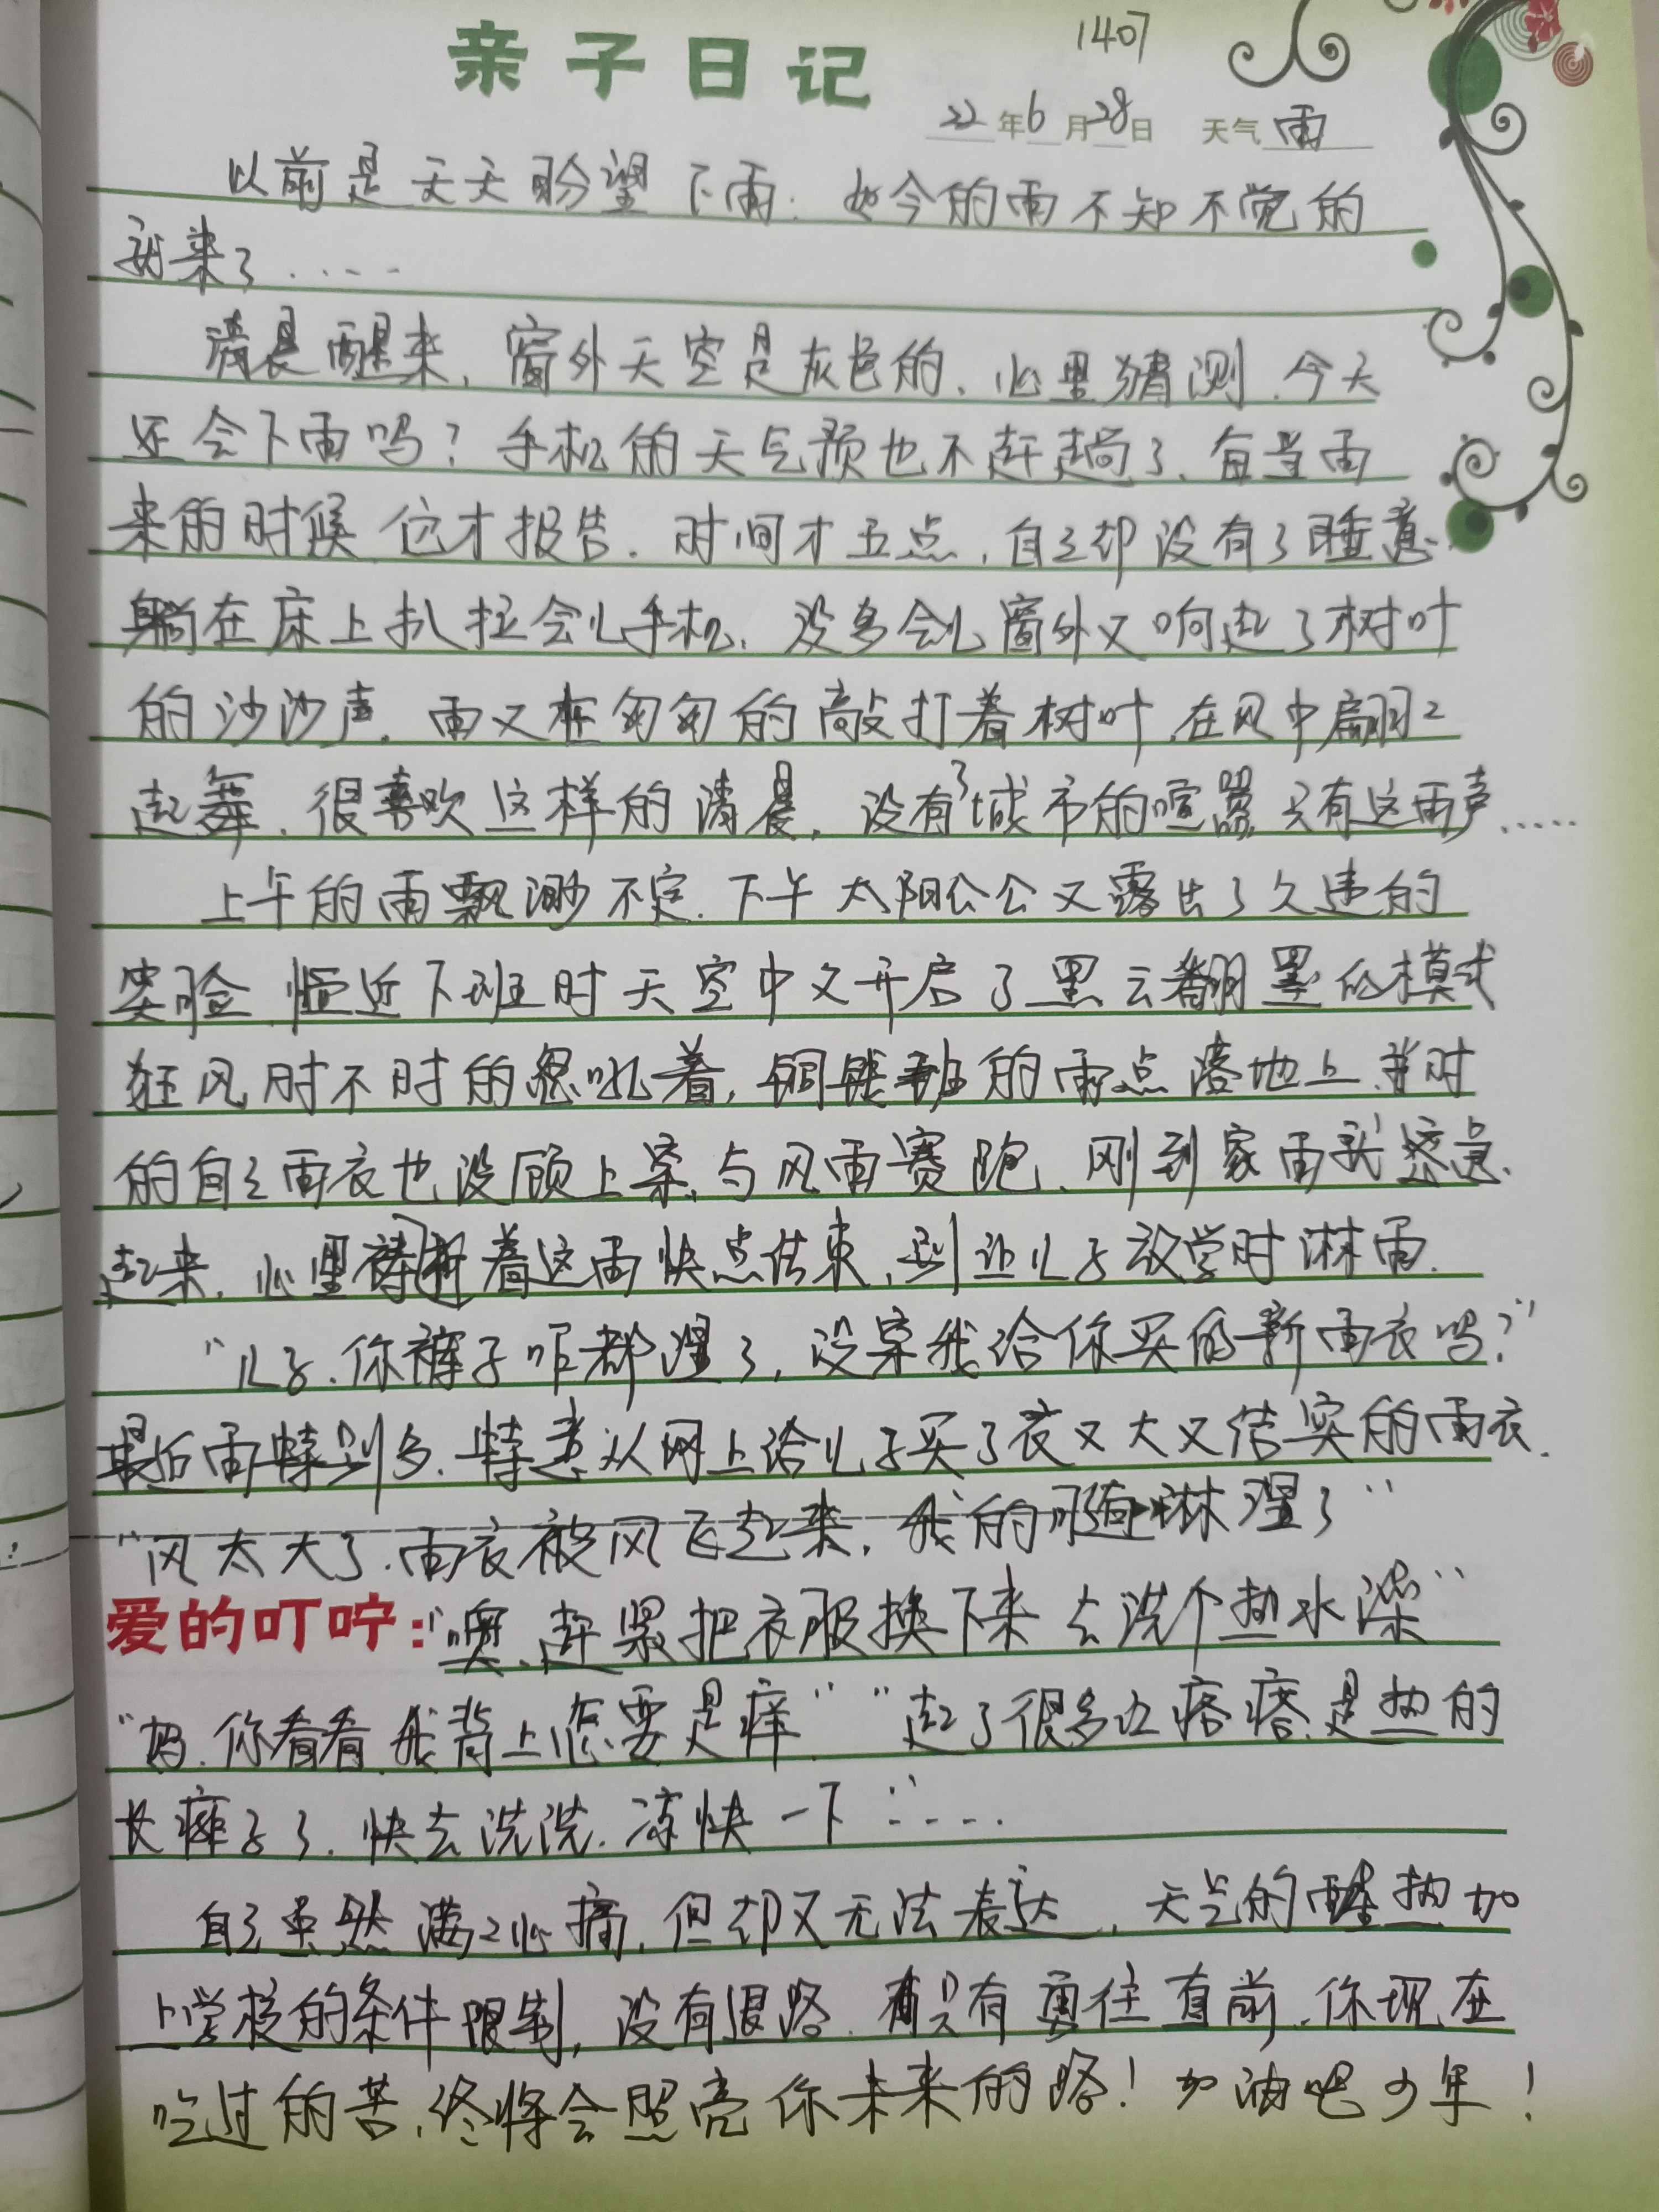 亲子日记
1407
22年6月28日 天气雨
以前是天天盼望下雨.如今的雨不知不觉的
就来了.....
清晨醒来,窗外天空是灰色的.心里猜测.今天
还会下雨吗?手机的天气预也不赶趟了.每当雨
来的时候它才报告.时间才五点,自己却没有了睡意.
躺在床上扒拉会儿手机.没多会儿窗外又响起了树叶
的沙沙声.雨又在匆匆的敲打着树叶.在风中翩々
起舞.很喜欢这样的清晨,没有了城市的喧嚣只有这雨声.....
上午的雨飘渺不定.下午太阳公公又露出了久违的
笑脸.临近下班时天空中又开启了黑云翻墨的模式
狂风时不时的怒吼着,铜钱般的雨点落地上.当时
的自己雨衣也没顾上穿.与风雨赛跑.刚到家雨就密急
起来.心里祷着这雨快点结束,别让儿子放学时淋雨.
"儿子.你裤子咋都湿了,没穿我给你买的新雨衣吗?"
最近雨特别多.特意从网上给儿子买了衣又大又结实的雨衣.
"风太大了.雨衣被风飞起来,我的腿淋湿了"
爱的叮咛:"噢,赶紧把衣服换下来去洗个热水澡"
"妈.你看看我背上怎要是痒""起了很多小疙瘩.是热的
长痱子了.快去洗洗.凉快一下".....
自己虽然满々心痛,但却又无法表达,天气的热加
上学校的条件限制,没有退路.只有勇往直前.你现在
吃过的苦,终将会照亮你未来的路!加油吧少年!